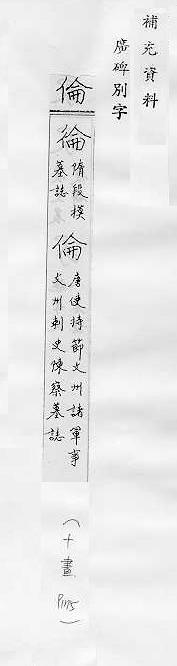 補充資料
廣碑別字
倫
倫 隋段模
墓誌
倫 唐使持節文州諸軍事
文州刺史陳察墓誌
(十畫 P1175)